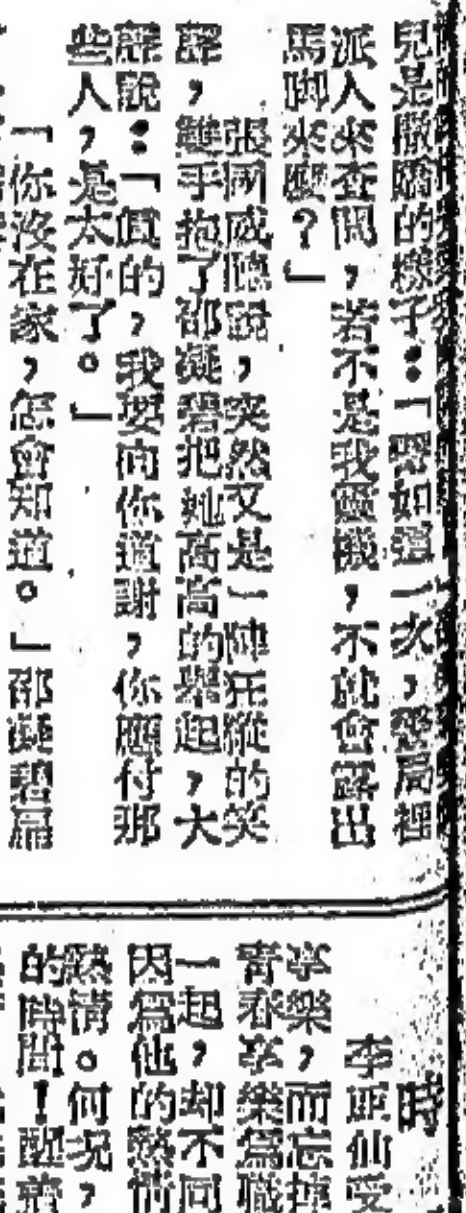 兒是撒嬌的樣子：「譬如這一次，警局裡
派人來查問，若不是我靈機，不就會露出
馬脚來麼？」
張國威聽說，突然又是一陣狂縱的笑
聲，雙手抱了邵凝碧把她高高的舉起，大
聲說：「眞的，我要向你道謝，你應付那
些人，是太好了。」
「你沒在家，怎會知道。」邵凝碧扁
時
李亞仙受
享樂，而忘掉
青春享樂爲職
一起，却不同
因爲他的熱情
熱情。何況，
的時間！